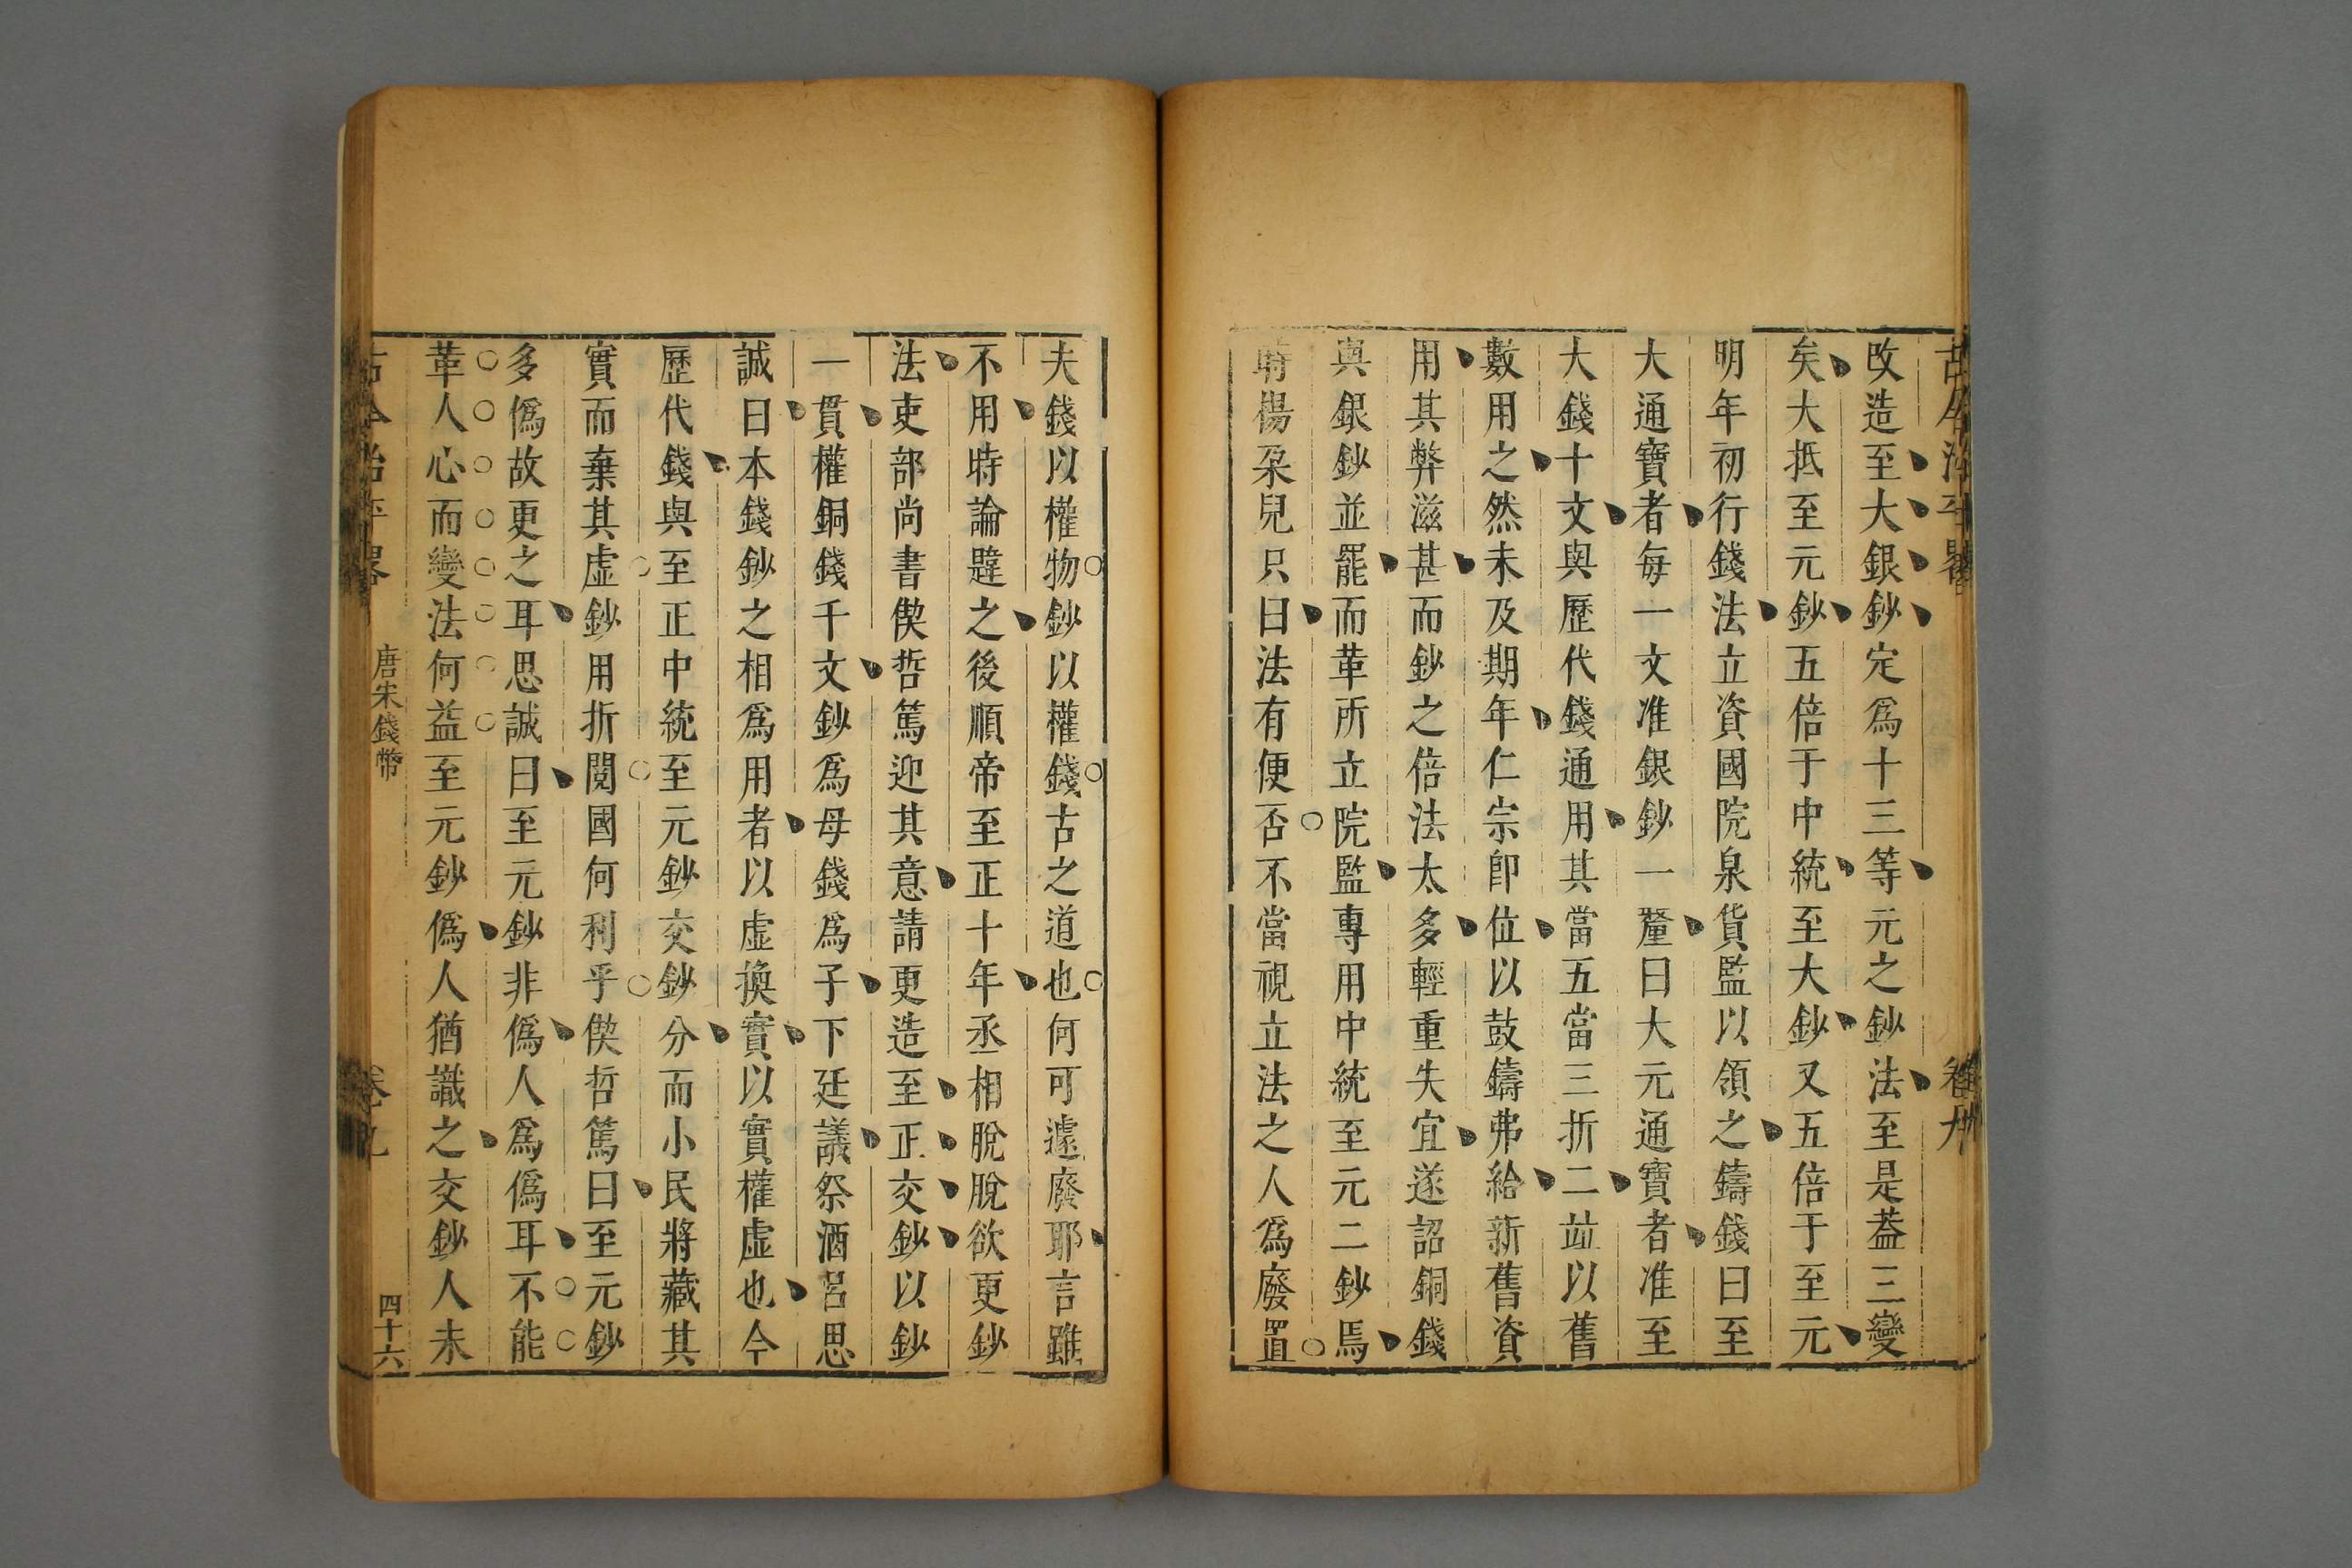 改造至大銀鈔定爲十三等元之鈔法至是葢三變
矣大抵至元鈔五倍于中統至大鈔又五倍于至元
明年初行錢法立資國院泉貨監以領之鑄錢曰至
大通寶者每一文准銀鈔一釐曰大元通寶者准至
大錢十文與歷代錢通用其當五當三折二竝以舊
數用之然未及期年仁宗卽位以鼓鑄弗給新舊資
用其弊滋甚而鈔之倍法太多輕重失宜遂詔銅錢
與銀鈔並罷而革所立院監專用中統至元二鈔焉
時楊朶兒只曰法有便否不當視立法之人爲廢置
夫錢以權物鈔以權錢古之道也何可遽廢耶言雖
不用時論韙之後順帝至正十年丞相脫脫欲更鈔
法吏部尚書偰哲篤迎其意請更造至正交鈔以鈔
一貫權銅錢千文鈔爲母錢爲子下廷議祭酒呂思
誠曰本錢鈔之相爲用者以虛換實以實權虛也今
歷代錢與至正中統至元鈔交鈔分而小民將藏其
實而棄其虛鈔用折閱國何利乎偰哲篤曰至元鈔
多僞故更之耳思誠曰至元鈔非僞人爲僞耳不能
革人心而變法何益至元鈔僞人猶識之交鈔人未
古今治平畧 唐宋錢幣 卷九 四十六